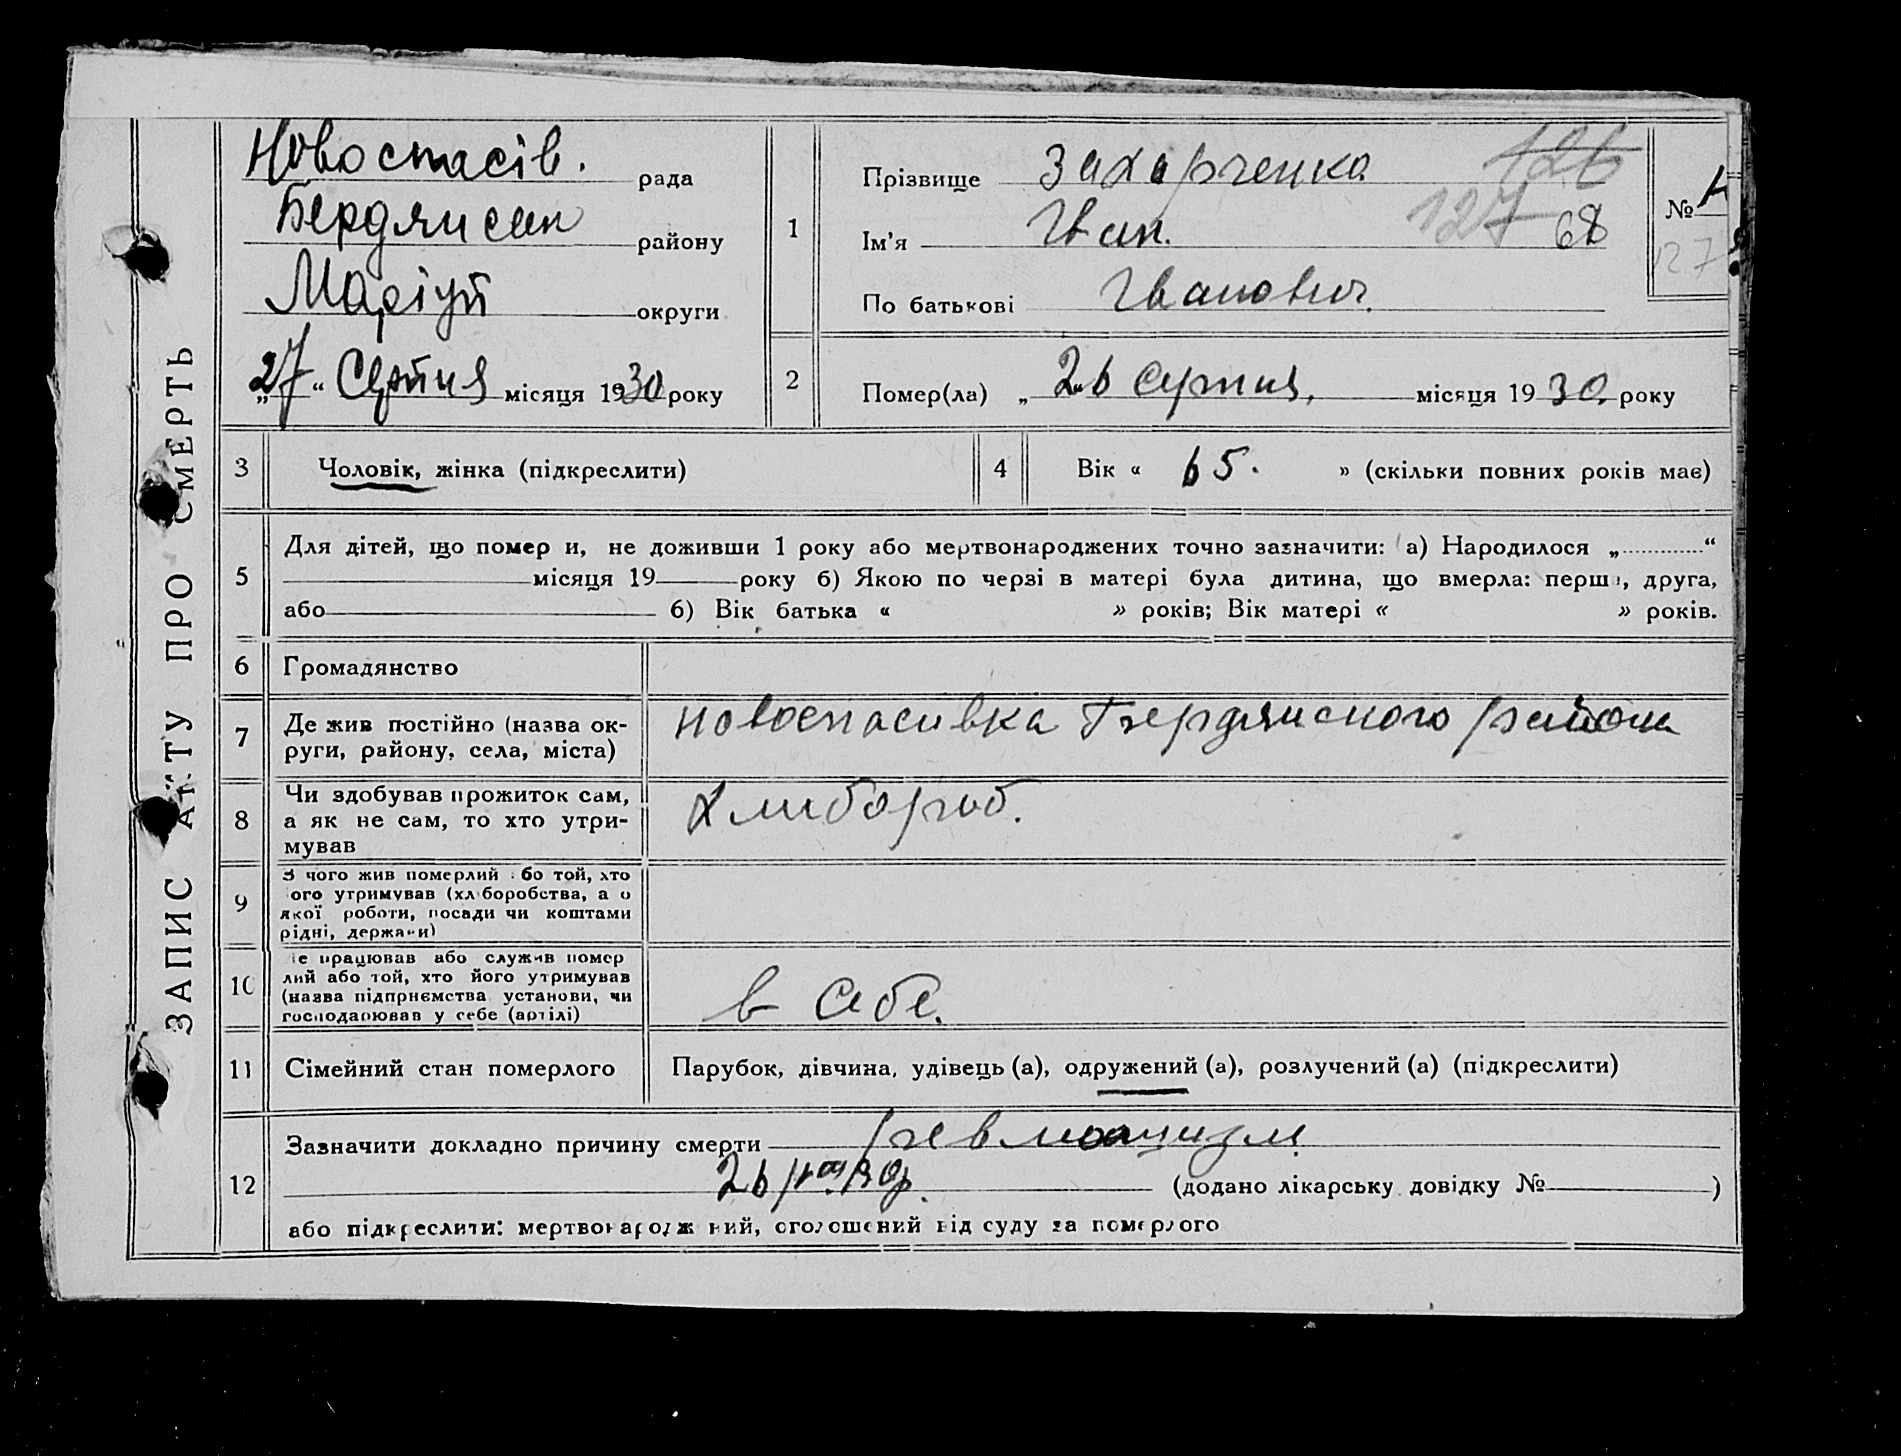 ЗАПИС АКТУ ПРО СМЕРТЬ
Новоспасів. рада
Бердянськ району
Маріуп округи
„27“ Серпня місяця 1930 року
1
Прізвище Захарченко
Ім'я Іван.
По батькові Іванович.
126
127
68
№
127
2
Помер(ла) „26 серпня, місяця 1930. року
3 Чоловік, жінка (підкреслити)
4 Вік « 65. » (скільки повних років має)
5
Для дітей, що помер и, не доживши 1 року або мертвонароджених точно зазначити: а) Народилося „ “
місяця 19 року б) Якою по черзі в матері була дитина, що вмерла: перш , друга,
або б) Вік батька « » років; Вік матері « » років.
6 Громадянство
7 Де жив постійно (назва ок-
руги, району, села, міста)
новоспасивка Бердянского района
8 Чи здобував прожиток сам,
а як не сам, то хто утри-
мував
Хлибороб.
9 З чого жив померлий бо той, хто
ого утримував (хл боробства, а о
якої роботи, посади чи коштами
рідні, держави)
10 е працював або служив помер
лий або той, хто його утримував
(назва підприємства установи, чи
господарював у себе (артілі)
в себе.
11 Сімейний стан померлого
Парубок, дівчина, удівець (а), одружений (а), розлучений (а) (підкреслити)
12
Зазначити докладно причину смерти ревмоцизм
(додано лікарську довідку № )
або підкреслити: мертвонародж ний, оголошений від суду за померлого